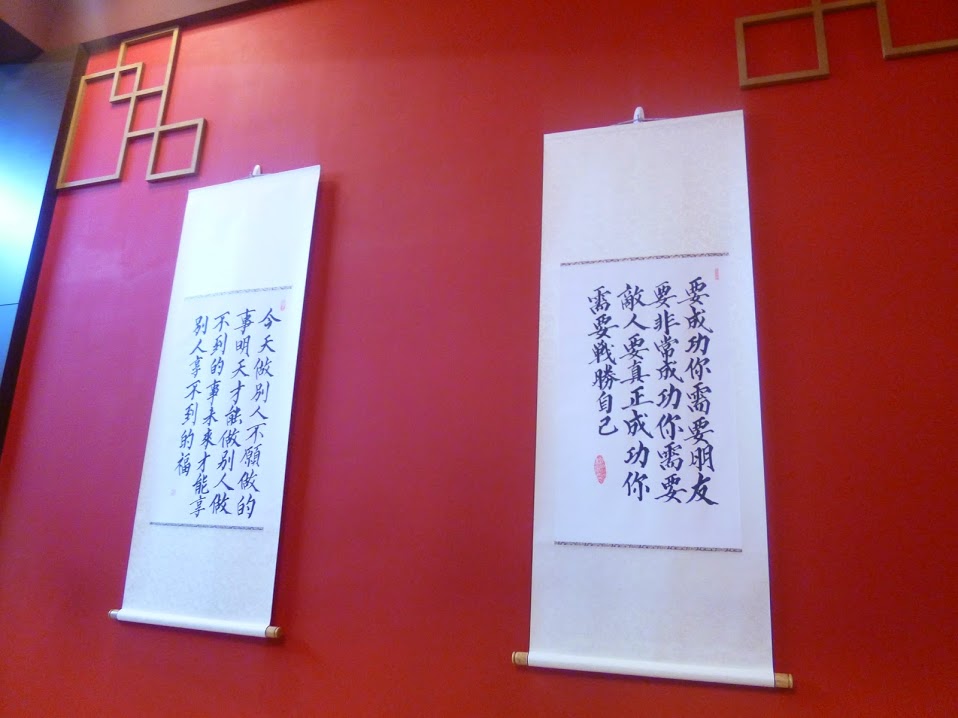 要成功你需要朋友
要非常成功你需要
敵人要真正成功你
需要戰勝自己
今天做別人不願做的
事明天才能做別人做
不到的事未來才能享
別人享不到的福